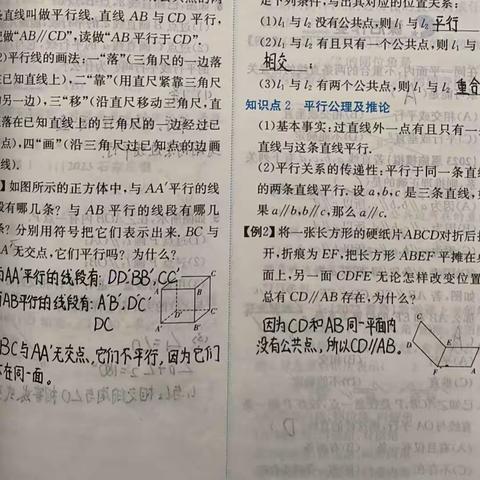 直线叫做平行线. 直线 AB 与 CD 平行,
做"AB//CD",读做"AB平行于CD".
2)平行线的画法:一"落"(三角尺的一边落
已知直线上),二"靠"(用直尺紧靠三角尺
另一边),三"移"(沿直尺移动三角尺,直
落在已知直线上的三角尺的一边经过已
点),四"画"(沿三角尺过已知点的边画
线).
】如图所示的正方体中,与AA′平行的线
有哪几条? 与 AB 平行的线段有哪几
条? 分别用符号把它们表示出来. BC 与
AA′无交点,它们平行吗? 为什么?
AA′平行的线段有: DD′ BB′, CC′
AB平行的线段有: A′B′, D′C′
DC
BC与AA′无交点,它们不平行,因为它们
在同一面。
定下列条件,与出其对应的位置关系:
(1)l₁与l₂没有公共点,则l₁与l₂平行
(2)l₁与l₂有且只有一个公共点,则l₁与
相交;
(3)l₁与l₂有两个公共点,则l₁与l₂重合
知识点2 平行公理及推论
(1)基本事实:过直线外一点有且只有一
直线与这条直线平行.
(2)平行关系的传递性:平行于同一条直
的两条直线平行. 设a,b,c是三条直线,
果a//b,b//c,那么a//c.
【例2】将一张长方形的硬纸片ABCD对折后
开,折痕为EF,把长方形ABEF平摊在
面上,另一面CDFE无论怎样改变位置
总有CD//AB存在,为什么?
因为CD和AB同一平面内
没有公共点,所以CD//AB。